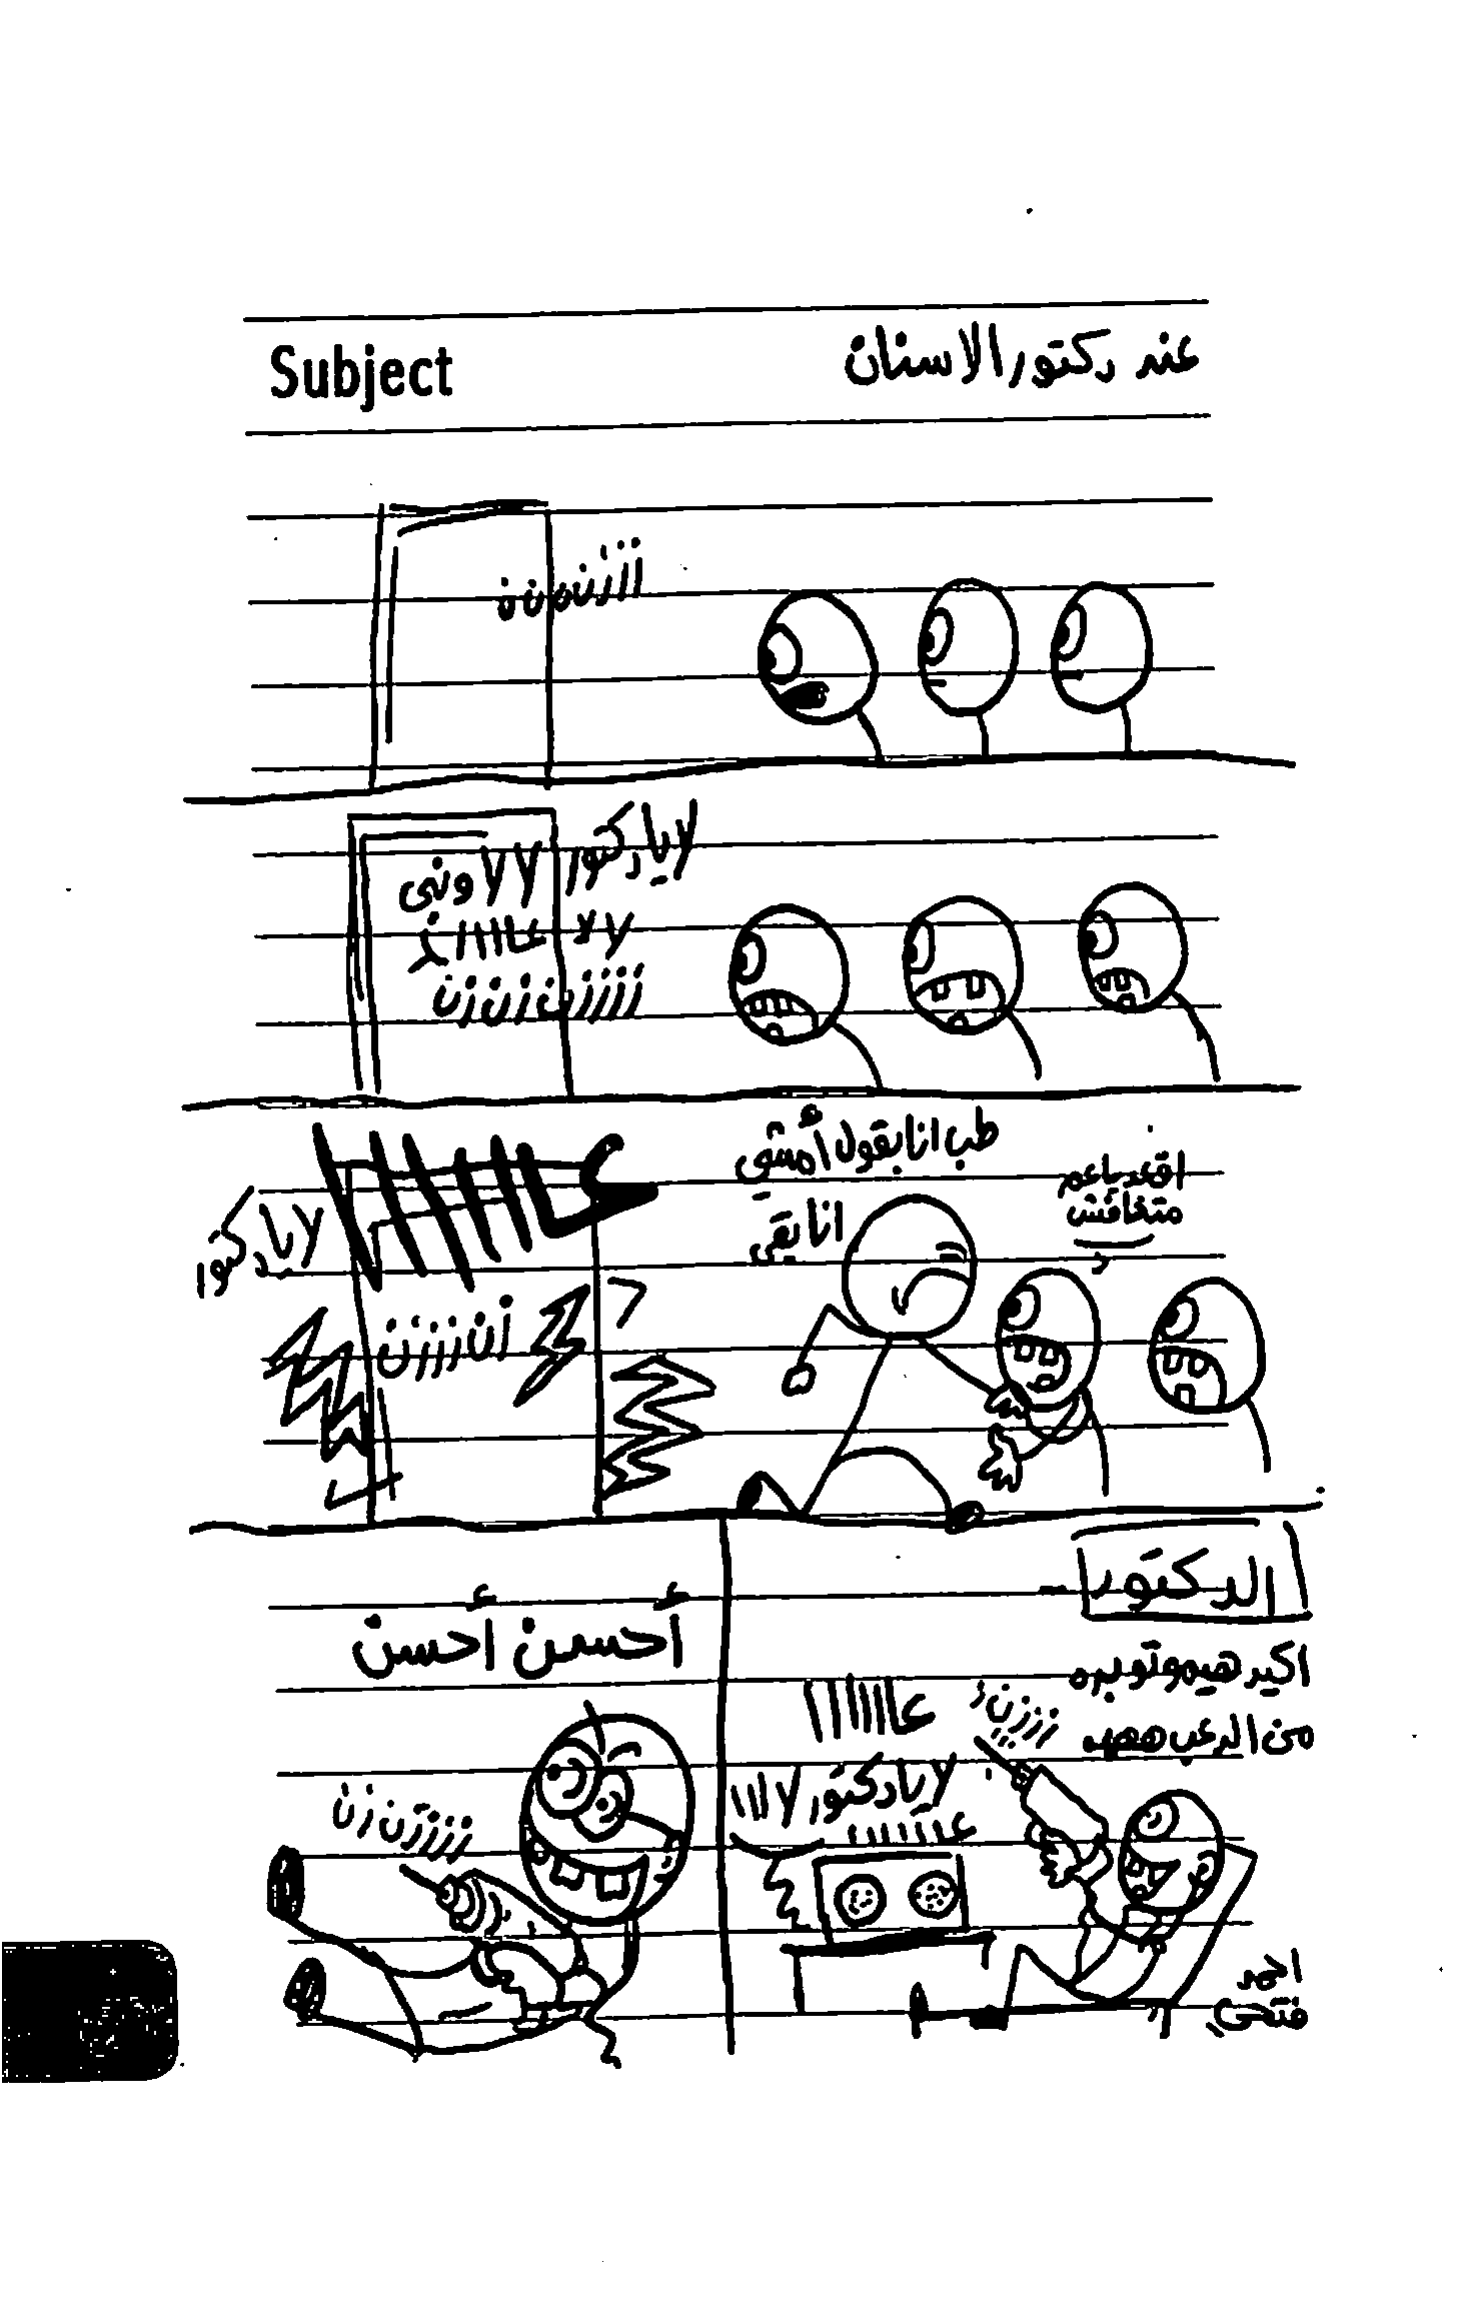 Subject
عند دكتور الاسنان
زززنننن
لا يا دكتور لا لا ونبى
لا لا عاااااغ
زززززن زن زن
عااااااا
لا يا دكتور
زن زززن
طب انا بقول أمشي
انا بقى
اقعد يا عم
متخافش
الدكتور
اكيد هيموتو بره
من الرعب ههههه
زززن
عاااااا
لا يا دكتور لااااا
أحسن أحسن
زززززن زن
احمد
فتحي